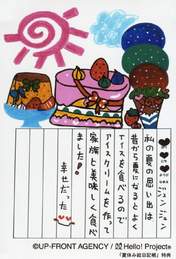 私の夏の思い出は
昔から夏になるとよく
アイスを食べるので
アイスクリームを作って
家族と美味しく食べ
ました!
幸せだった
©UP-FRONT AGENCY / Hello! Project
「夏休み絵日記帳」特典